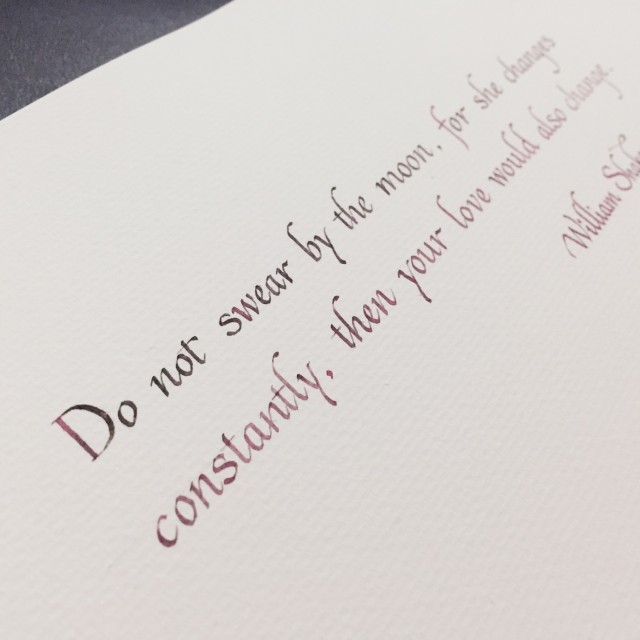 Do not swear by the moon, for she changes
constantly, then your love would also change.
William